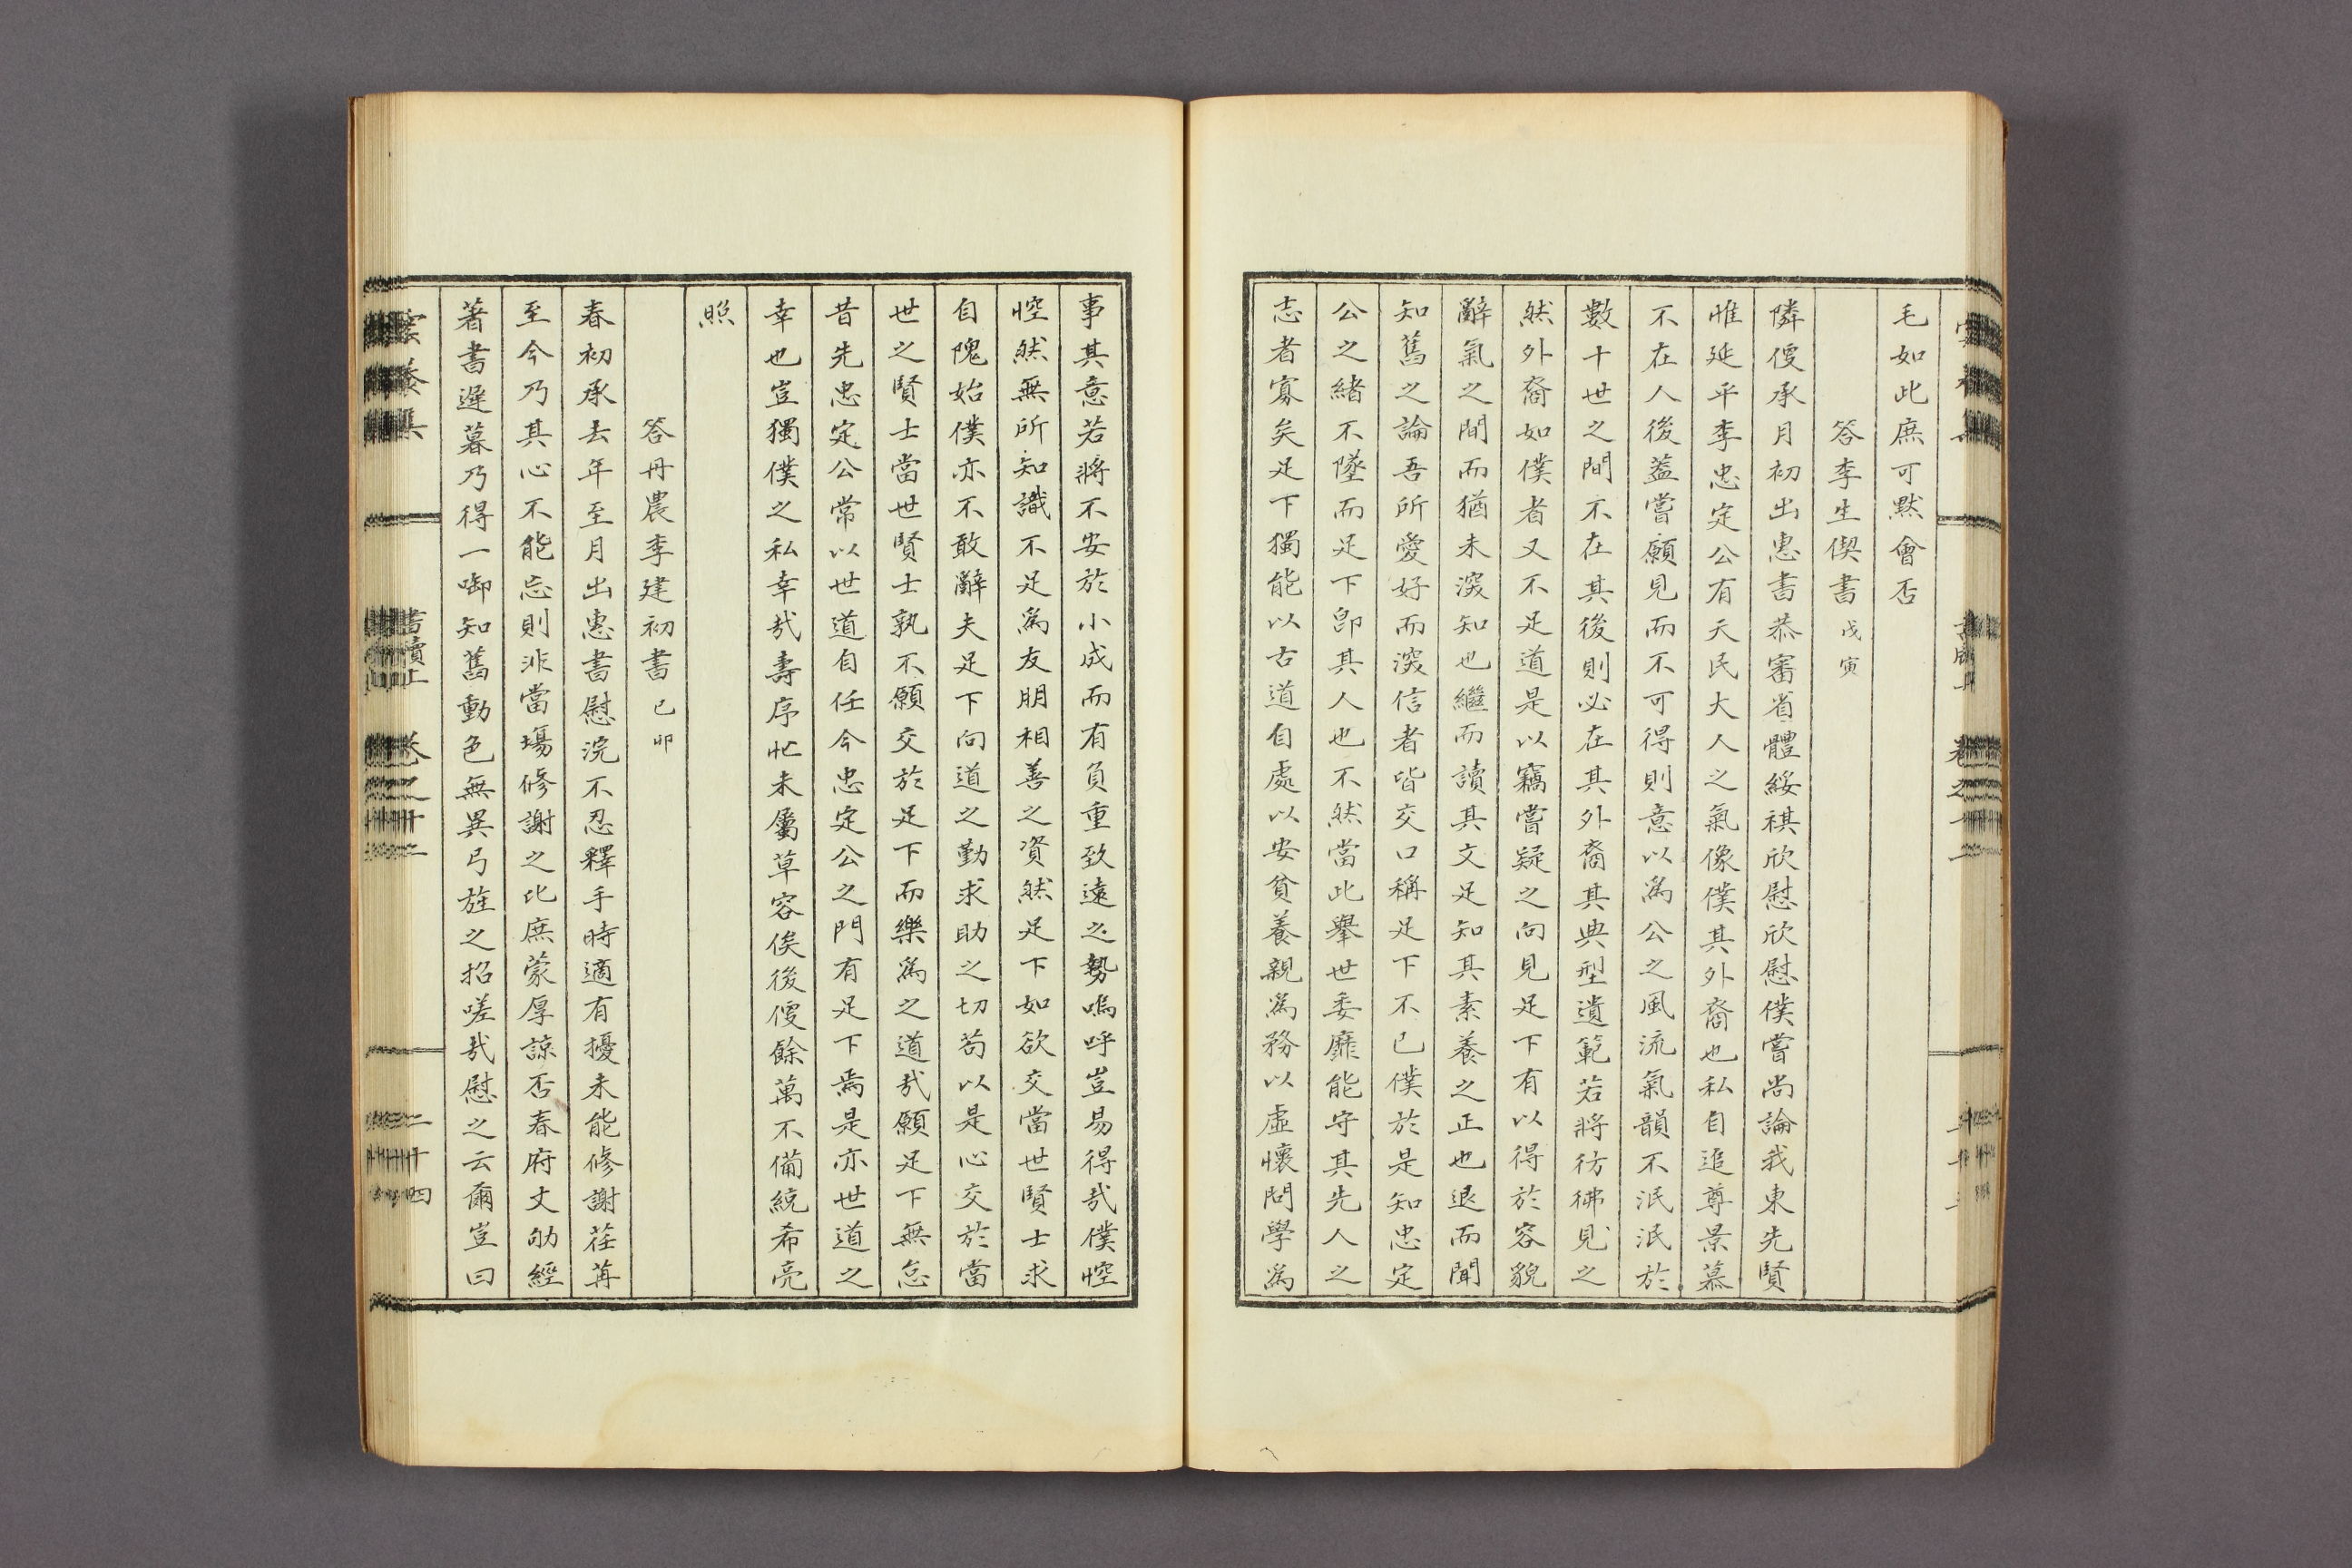 毛如此庶可默會否
答李生偰書 戊寅
隣便承月初出惠書恭審省體綏祺欣慰欣慰僕嘗尚論我東先賢
惟延平李忠定公有天民大人之氣像僕其外裔也私自追尊景慕
不在人後蓋嘗願見而不可得則意以爲公之風流氣韻不泯泯於
數十世之間不在其後則必在其外裔其典型遺範若將彷彿見之
然外裔如僕者又不足道是以竊嘗疑之向見足下有以得於容貌
辭氣之間而猶未深知也繼而讀其文足知其素養之正也退而聞
知舊之論吾所愛好而深信者皆交口稱足下不已僕於是知忠定
公之緖不墜而足下卽其人也不然當此擧世委靡能守其先人之
志者寡矣足下獨能以古道自處以安貧養親爲務以虛懷問學爲
事其意若將不安於小成而有負重致遠之勢嗚呼豈易得哉僕悾
悾然無所知識不足爲友朋相善之資然足下如欲交當世賢士求
自隗始僕亦不敢辭夫足下向道之勤求助之切苟以是心交於當
世之賢士當世賢士孰不願交於足下而樂爲之道哉願足下無怠
昔先忠定公常以世道自任今忠定公之門有足下焉是亦世道之
幸也豈獨僕之私幸哉壽序忙未屬草容俟後便餘萬不備統希亮
照
答丹農李建初書 己卯
春初承去年至月出惠書慰浣不忍釋手時適有擾未能修謝荏苒
至今乃其心不能忘則非當場修謝之比庶蒙厚諒否春府丈劬經
著書遲暮乃得一啣知舊動色無異弓旌之招嗟哉慰之云爾豈曰
書牘上 卷之十二 二十四